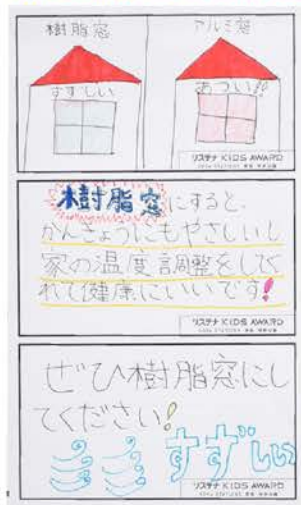 樹脂窓
アルミ窓
すずしい
あつい!!
リステナ KIDS AWARD
樹脂窓にすると、
かんきょうにもやさしいし
家の温度調整をしてく
れて健康にいいです!
リステナ KIDS AWARD
ぜひ樹脂窓にし
てください!
すずしい
リステナ KIDS AWARD